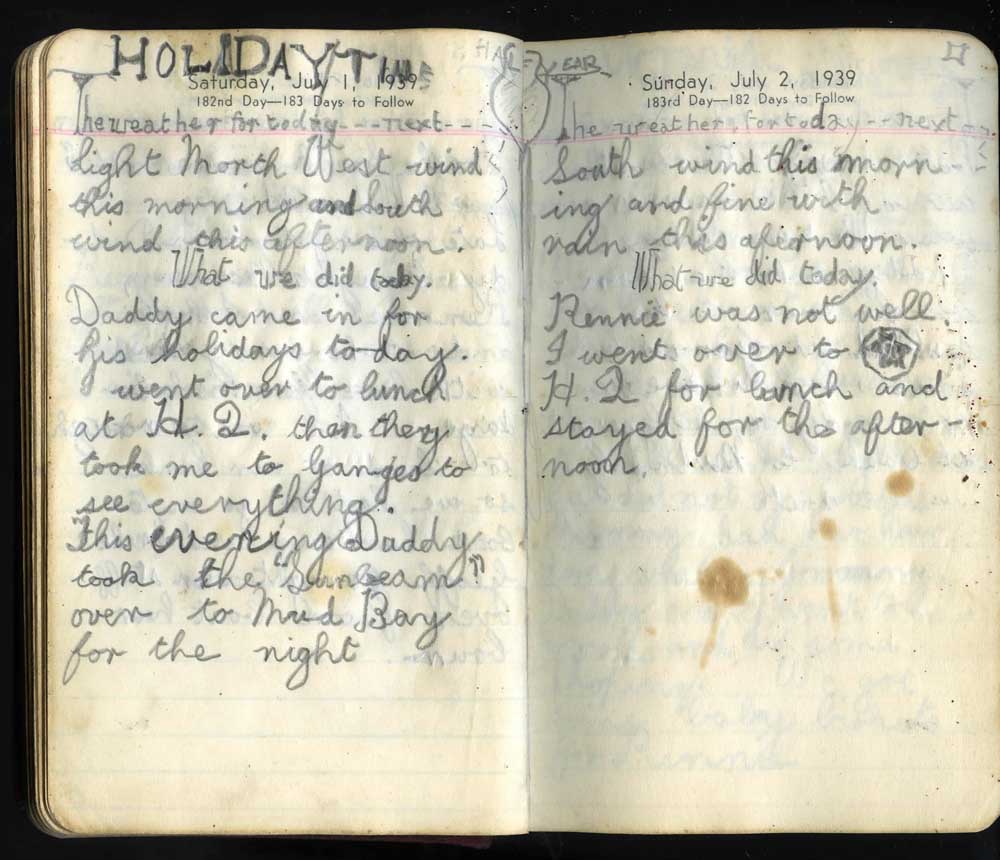 HOLIDAY TIME
Saturday, July 1, 1939
182nd Day—183 Days to Follow
The weather for today---next---
Light North West wind
this morning and South
wind this afternoon.
What we did today.
Daddy came in for
his holidays to-day.
went over to lunch
at H. Q. than they
took me to Ganges to
see everything.
This evening Daddy
took the "Sunbeam"
over to Mud Bay
for the night
HALF YEAR
Sunday, July 2, 1939
183rd Day—182 Days to Follow
The weather for today--next
South wind this morn-
ing and fine with
rain this afternoon.
What we did today.
Rennie was not well.
I went over to
H. Q for lunch and
stayed for the after-
noon.